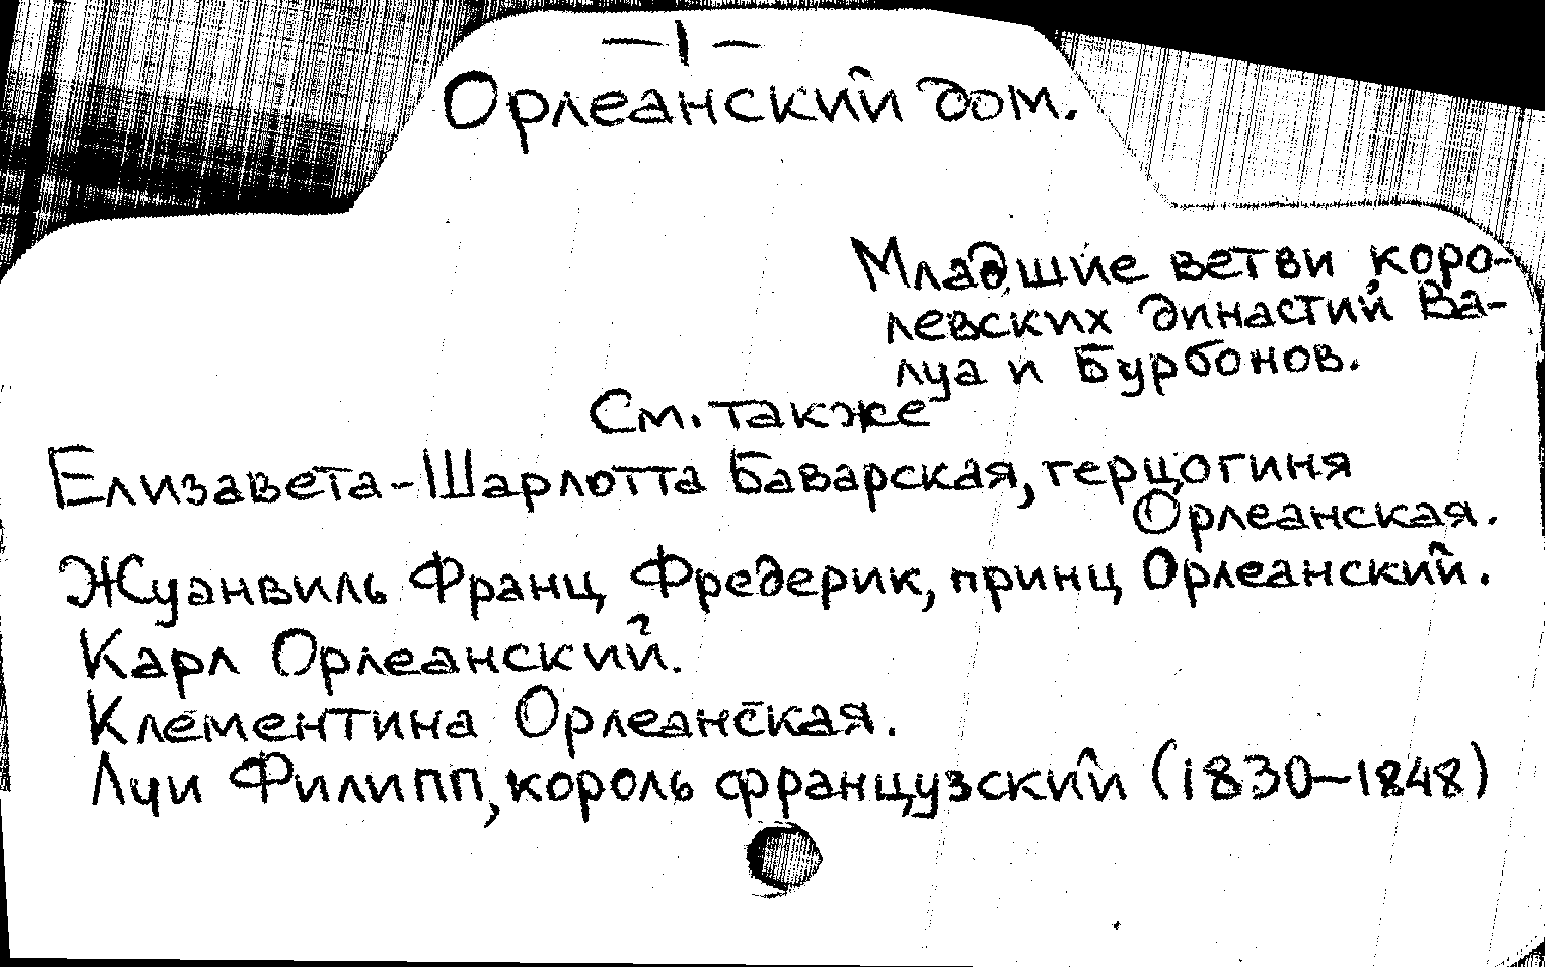 —1—
Орлеанский дом.
Младшие ветви коро-
левских династий Ва-
луа и Бурбонов.
См. также
Елизавета-Шарлотта Баварская, герцогиня
Орлеанская.
Жуанвиль Франц Фредерик, принц Орлеанский.
Карл Орлеанский.
Клементина Орлеанская.
Луи Филипп, король французский (1830—1848)